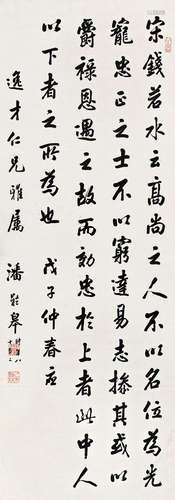 宋錢若水云高尚之人不以名位為光
寵忠正之士不以窮達易志操其或以
爵祿恩遇之故而効忠於上者此中人
以下者之所為也 戊子仲春應
逸才仁兄雅属 潘齡皋